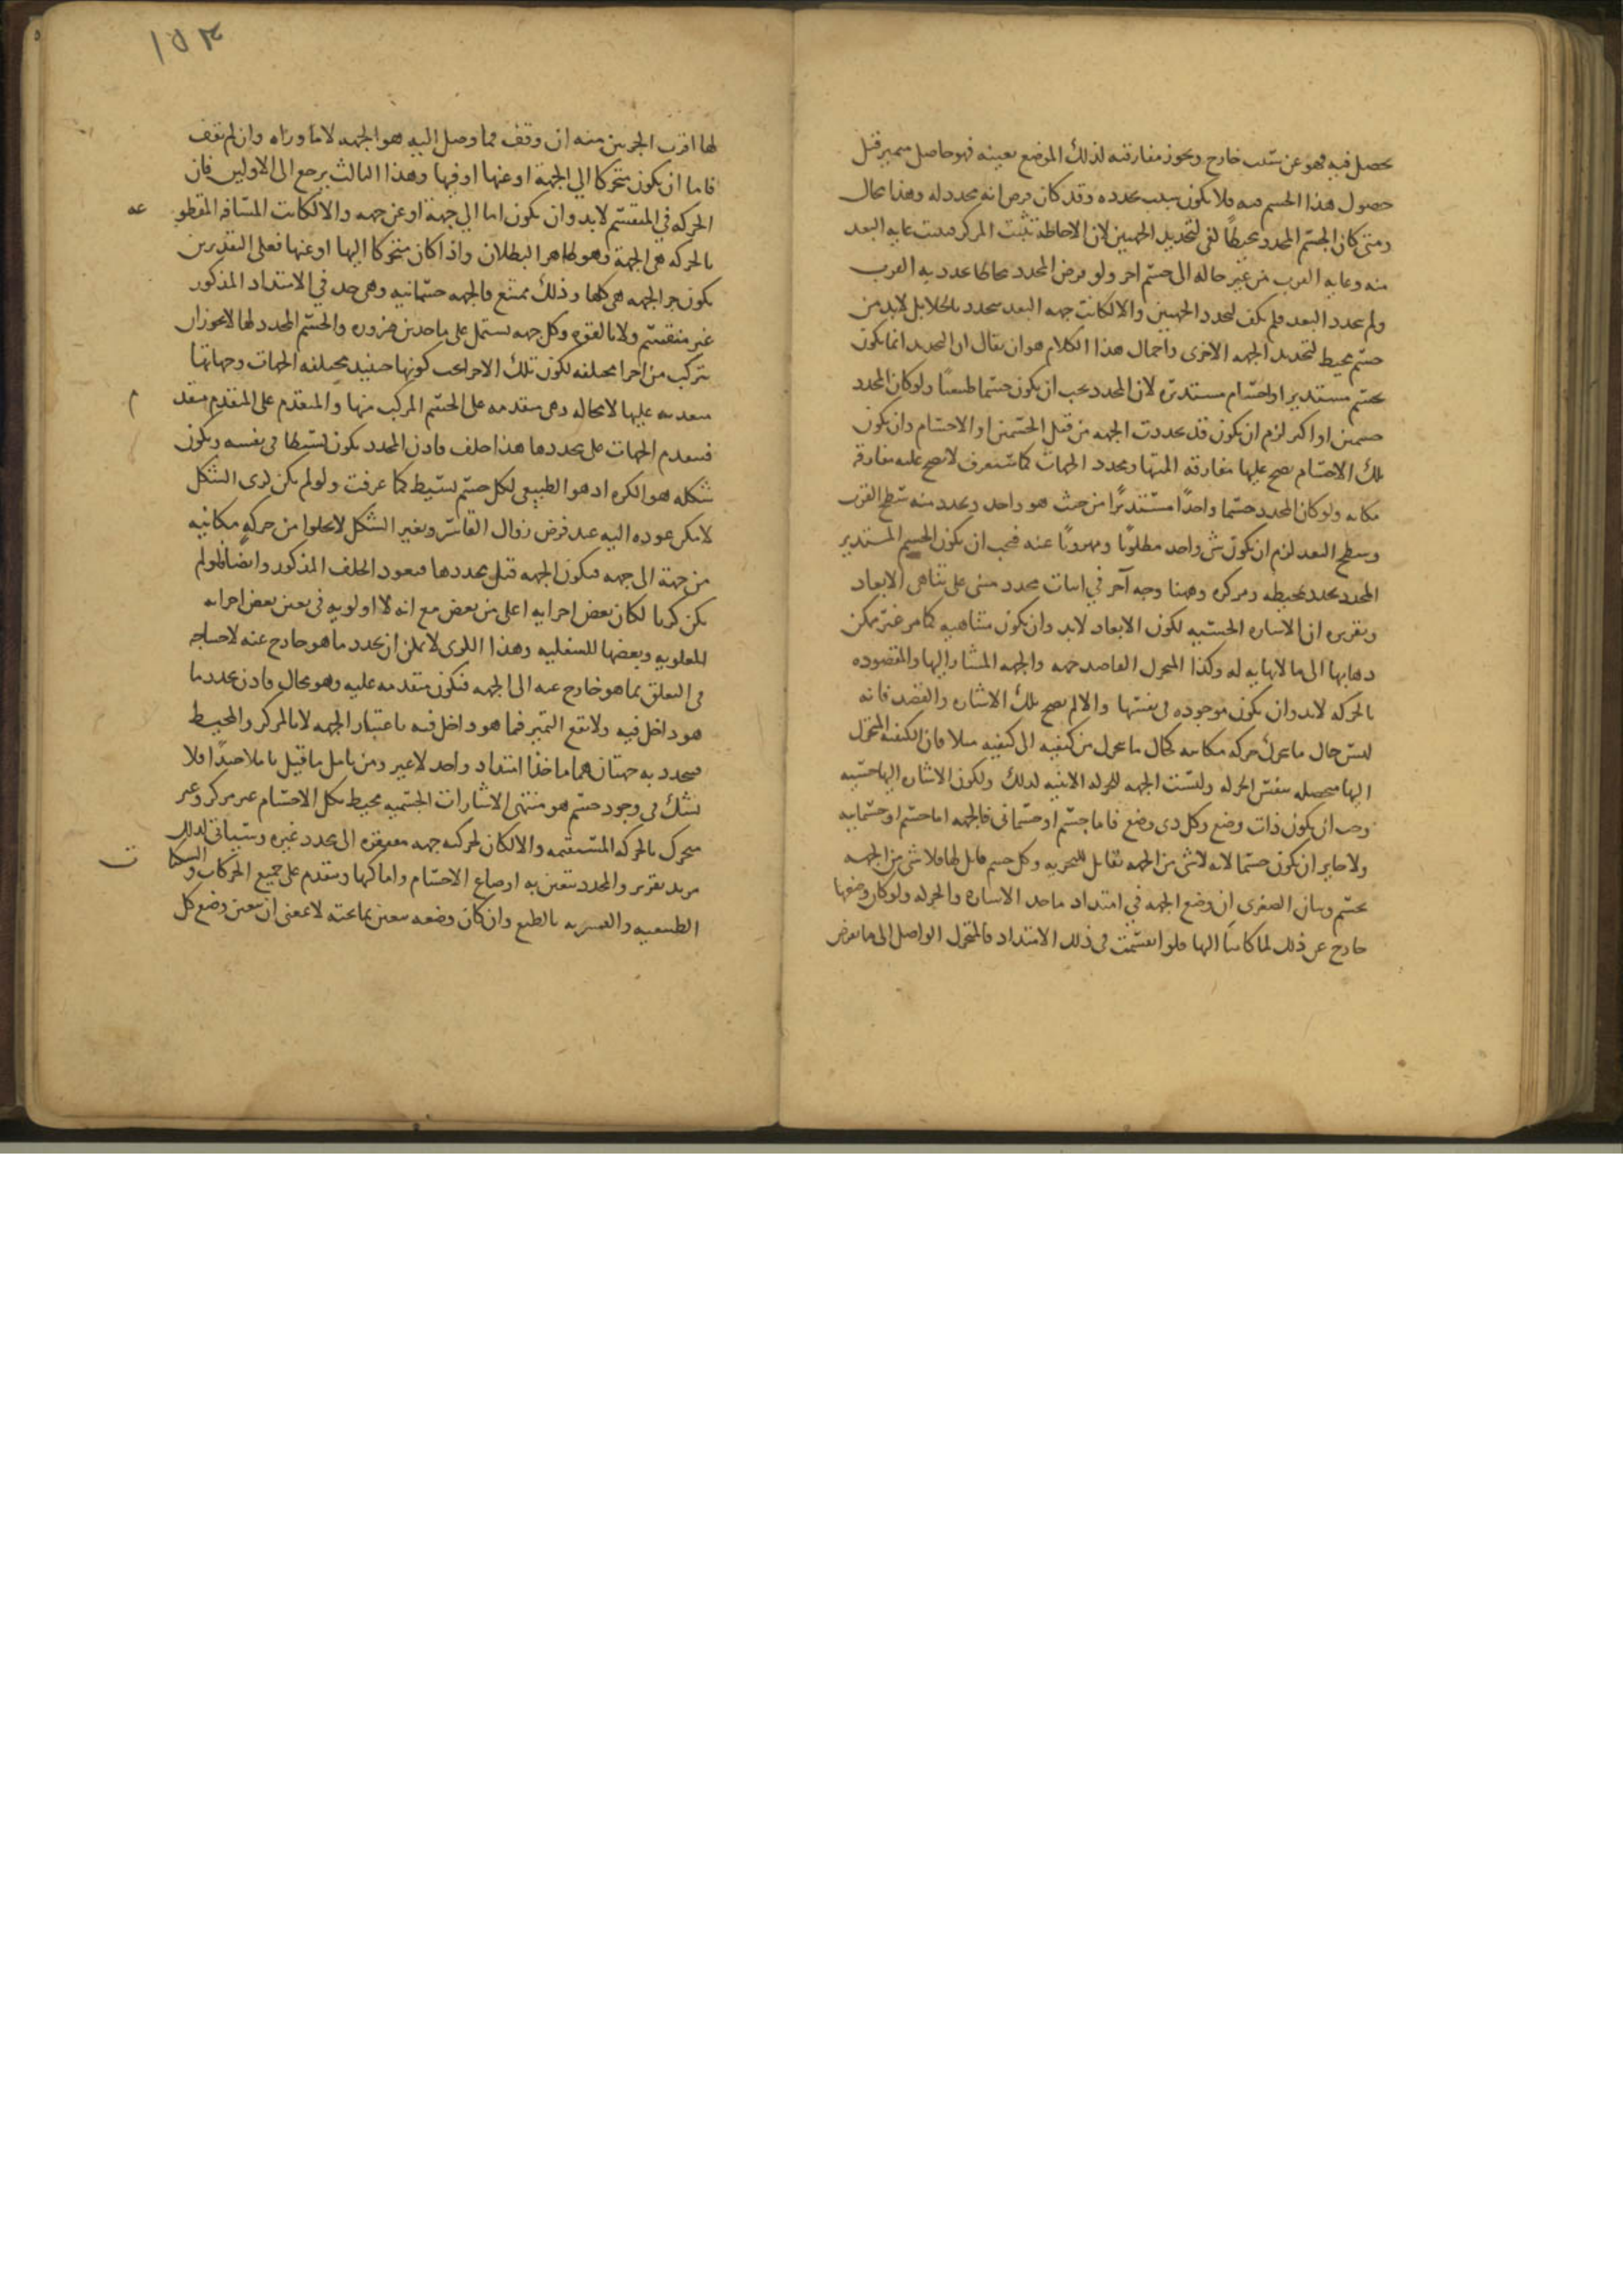 يحصل فيه فهو عن سبب خارج ويجوز مفارقته لذلك الموضع بعينه فهو حاصل متميز قبل
حصول هذا الجسم فيه فلا يكون بسبب محدده وقد كان فرض انه محدد له وهذا محال
ومتى كان الجسم المحدد محيطاً كفى لتحديد الجهتين لان الاحاطة تثبت المركز فثبت غايه البعد
منه وغايه القرب من غير حاله الى جسم اخر ولو فرض المحدد محاطا محدد به القرب
ولم يحدد البعد فلم يكف لتحدد الجهتين والا لكانت جهه البعد تتحدد بالخلا بل لابد من
جسم محيط لتحديد الجهه الاخرى واجمال هذا الكلام هو ان يقال ان التحديد انما يكون
بجسم مستدير او اجسام مستديره لان المحدد يجب ان يكون جسما طبيعيا ولو كان المحدد
جسمين او اكثر لزم ان يكون قد تحددت الجهه من قبل الجسمين او الاجسام وان يكون
تلك الاجسام يصح عليها مفارقه امكنتها ومحدد الجهات كما ستعرف لا يصح عليه مفارقه
مكانه ولو كان المحدد جسما واحداً مستديرًا من حيث هو واحد ويحدد منه سطح القرب
وسطح البعد لزم ان يكون شي واحد مطلوبًا ومهروبًا عنه فيجب ان يكون الجسم المستدير
المحدد يحدد بمحيطه ومركزه وههنا وجه آخر في اثبات محدد مبنى على تناهى الابعاد
وتقريره ان الاشاره الحسيه لكون الابعاد لابد وان يكون متناهيه كما مر غير ممكن
ذهابها الى ما لا نهايه له وكذا المتحرك القاصد جهه والجهه المشار اليها والمقصوده
بالحركه لابد وان يكون موجوده فى نفسها والا لم يصح تلك الاشاره والقصد فانه
ليس حال ما تحرك حركه مكانيه كحال ما تحرك من كيفيه الى كيفيه مثلا فان الكيفيه المتحرك
اليها متحصله بنفس الحركه وليست الجهه للحركه الاينيه كذلك ولكون الاشاره اليها حسيه
وجب ان يكون ذات وضع وكل ذى وضع فاما جسم او جسمانى فالجهه اما جسم او جسمانيه
ولا جايز ان يكون جسما لانه لا شي من الجهه بقابل للتجزيه وكل جسم قابل لها فلا شي من الجهه
بجسم وبيان الصغرى ان وضع الجهه في امتداد ماخذ الاشاره والحركه ولو كان وضعها
خارج عن ذلك لما كانتا اليها فلو انقسمت فى ذلك الامتداد فالمتحرك الواصل الى ما يفرض
١٥٣
لها اقرب الجزئين منه ان وقف فما وصل اليه هو الجهه لا ما وراه وان لم يقف
فاما ان يكون متحركا الي الجهة او عنها او فيها وهذا الثالث يرجع الى الاولين فان
الحركه في المنقسم لابد وان يكون اما الي جهة او عن جهه والا لكانت المسافه المقطوعه
بالحركه هى الجهة وهو ظاهر البطلان واذا كان متحركا اليها او عنها فعلى التقديرين
يكون جز الجهه هى كلها وذلك ممتنع فالجهه جسمانيه وهى حد في الامتداد المذكور
غير منقسم ولا بالقوه وكل جهه تشتمل على ماخذين ضروره والجسم المحدد لها لا يجوز ان
يتركب من اجزا مختلفه لكون تلك الاجزا يجب كونها حينيذ مختلفه الجهات وجهاتها
متقدمه عليها لا محاله وهى متقدمه على الجسم المركب منها والمتقدم على المتقدم متقدم
فتقدم الجهات على محددها هذا خلف فاذن المحدد يكون بسيطا فى نفسه ويكون
شكله هو الكره اذ هو الطبيعى لكل جسم بسيط كما عرفت ولو لم يكن كرى الشكل
لامكن عوده اليه عند فرض زوال القاسر وتغير الشكل لا يخلوا من حركة مكانيه
من جهة الى جهه فيكون الجهه قبل محددها فيعود الخلف المذكور وايضا فلو لم
يكن كريا لكان بعض اجزايه اعلى من بعض مع انه لا اولويه فى تعين بعض اجزايه
للعلويه وبعضها للسفليه وهذا الكرى لا يمكن ان يحدد ما هو خارج عنه لاحتياجه
فى التعلق بما هو خارج عنه الى الجهه فيكون متقدمه عليه وهو محال فاذن يحدد ما
هو داخل فيه ولا يقع التميز فيما هو داخل فيه باعتبار الجهه الا بالمركز والمحيط
فيحدد به جهتان هما ماخذا امتداد واحد لا غير ومن تامل ما قيل تاملا جيدًا فلا
يشك فى وجود جسم هو منتهى الاشارات الجسميه محيط بكل الاجسام غير مركز وغير
متحرك بالحركه المستقيمه والا لكان لحركته جهه مفتقره الى محدد غيره وسياتى لذلك
مزيد تقرير والمحدد يتعين به اوضاع الاجسام واماكنها ويتقدم على جميع الحركات والسكنات
الطبيعيه والقسريه بالطبع وان كان وضعه يتعين بما تحته لا بمعنى ان تعين وضع كل